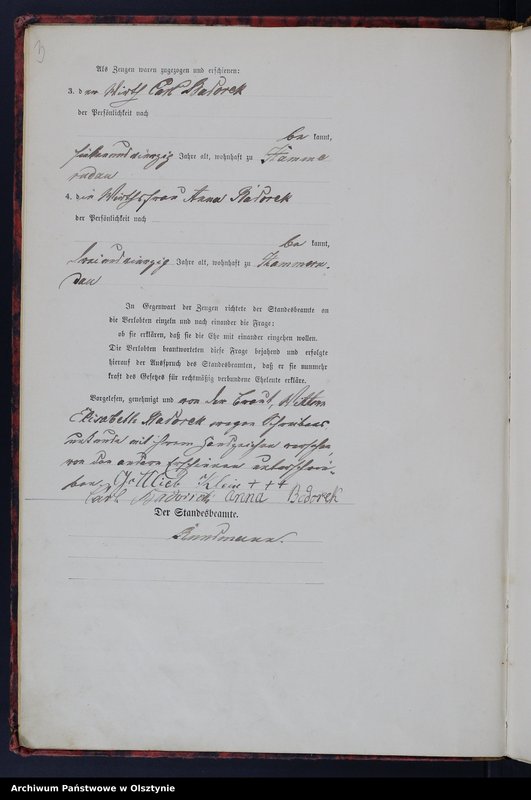 Als Zeugen waren zugezogen und erschienen:
3. der Wirth Carl Badorek
der Persönlichkeit nach
be kannt,
siebenundvierzig Jahre alt, wohnhaft zu
4. die Wirthsfrau Anna Badorek
der Persönlichkeit nach
be kannt,
dreiundvierzig Jahre alt, wohnhaft zu
In Gegenwart der Zeugen richtete der Standesbeamte an
die Verlobten einzeln und nach einander die Frage:
ob sie erklären, daß sie die Ehe mit einander eingehen wollen.
Die Verlobten beantworteten diese Frage bejahend und erfolgte
hierauf der Ausspruch des Standesbeamten, daß er sie nunmehr
kraft des Gesetzes für rechtmäßig verbundene Eheleute erkläre.
Vorgelesen, genehmigt und von der Braut, Wittwe
Elisabeth Badorek wegen Schreibens
unkunde mit ihrem Handzeichen versehen
von den andern Erschienen unterschrie-
ben. Gottlieb Klein +++
Carl Badorek Anna Bedorek
Der Standesbeamte.
Archiwum Państwowe w Olsztynie